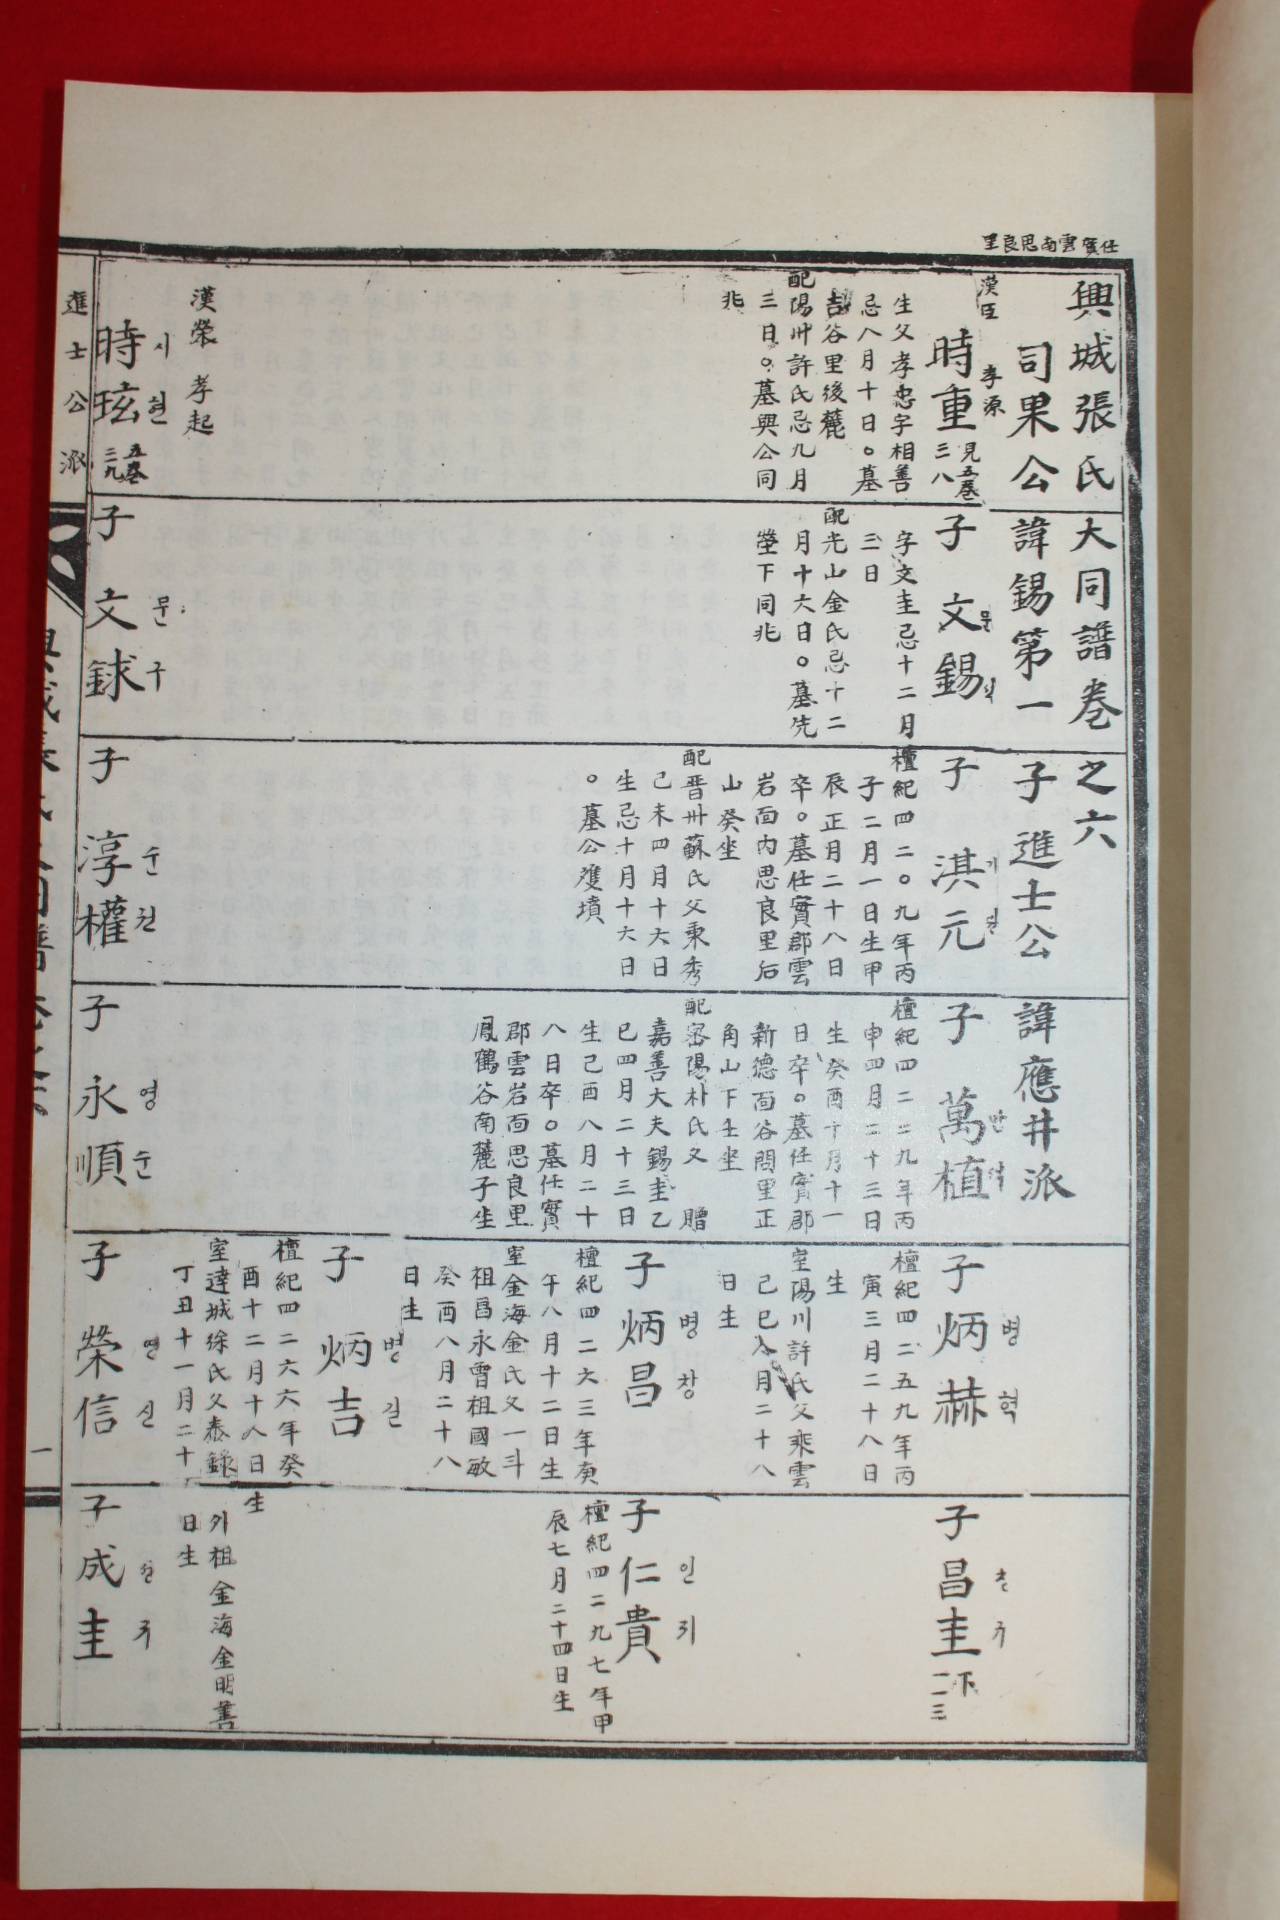 任實雲南思良里
興城張氏大同譜卷之六
司果公諱錫第一子進士公諱應井派
漢臣
孝源
時重
見五卷
三八
生父孝忠字相善
忌八月十日○墓
吉谷里後麓
配陽川許氏忌九月
三日○墓與公同
兆
漢榮 孝起
時玹
시현
五卷
三九
子 文錫
문석
字文圭忌十二月
三日
配光山金氏忌十二
月十六日○墓先
塋下同兆
子 文銶
문구
子 淇元
기원
檀紀四二○九年丙
子二月一日生甲
辰正月二十八日
卒○墓任實郡雲
岩面內思良里后
山癸坐
配晋州蘇氏父秉秀
己未四月十六日
生忌十月十六日
○墓公雙墳
子 淳權
순권
子 萬植
만식
檀紀四二二九年丙
申四月二十三日
生癸酉十月十一
日卒○墓任實郡
新德面谷間里正
角山下壬坐
配密陽朴氏父 贈
嘉善大夫錫圭乙
巳四月二十三日
生己酉八月二十
八日卒○墓任實
郡雲岩面思良里
鳳鶴谷南麓子坐
子 永順
영순
子炳赫
병혁
檀紀四二五九年丙
寅三月二十八日
生
室陽川許氏父秉雲
己巳八月二十八
日生
子炳昌
병창
檀紀四二六三年庚
午八月十二日生
室金海金氏父一斗
祖昌永曾祖國敏
癸酉八月二十八
日生
子炳吉
병길
檀紀四二六六年癸
酉十二月十八日
生
室達城徐氏父泰錄
丁丑十一月二十
日生
外祖金海金明善
子 榮信
영신
子昌圭
창규
下
一一三
子仁貴
인귀
檀紀四二九七年甲
辰七月二十四日生
子成圭
성규
進士公派
興城張氏大同譜 卷之六
一